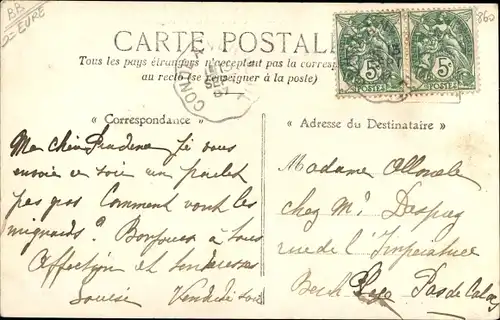 BB
EURE
860
CARTE POSTALE
Tous les pays étrangers n'acceptent pas la corresp
au recto (se renseigner à la poste)
CONCHES
SEPT
07
5c
5c
POSTES
POSTES
« Correspondance »
« Adresse du Destinataire »
Ma chère je vous
envoie ce soir un paquet
pas gros Comment vont les
mignards? Bonjour à tous
Affection et tendresses
Louise Vendredi soir
Madame
chez Mr Despay
rue de l'Impératrice
Berck Plage Pas de Calais